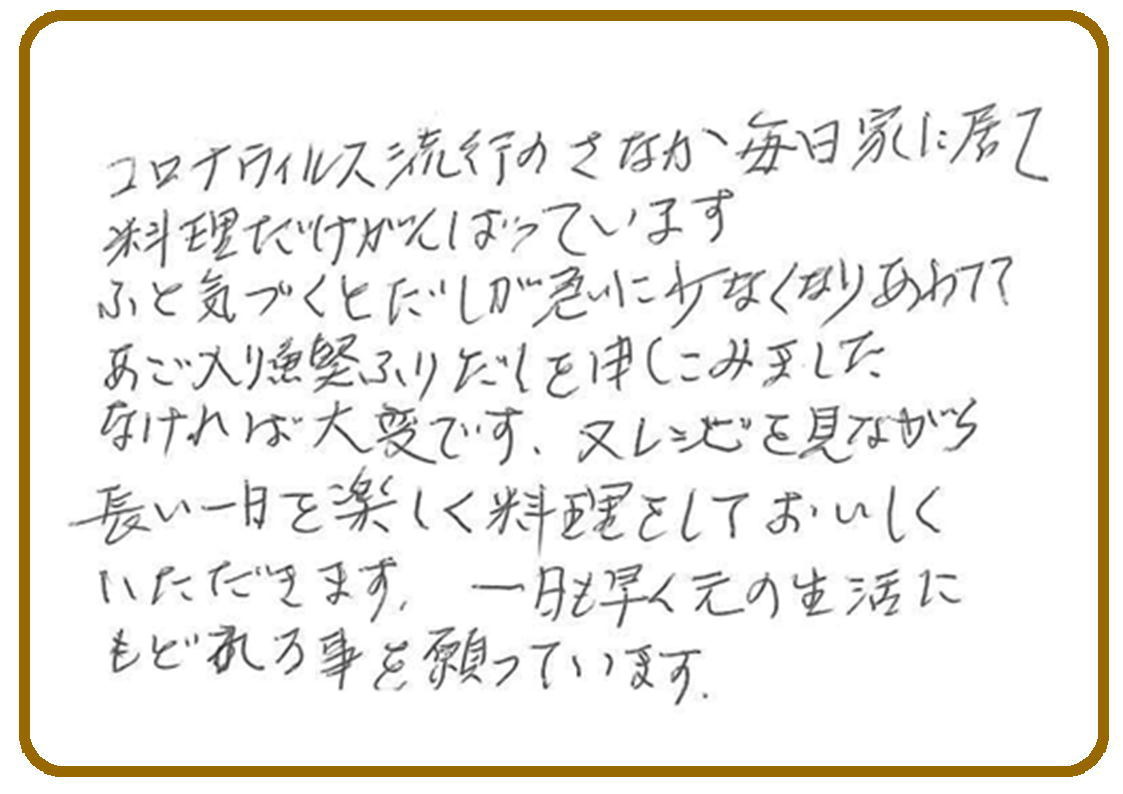 コロナウィルス流行のさなか毎日家に居て
料理だけがんばっています
ふと気づくとだしが急に少なくなりあわてて
あご入り漁堅ふりだしを申しこみました
なければ大変です、又レシピを見ながら
長い一日を楽しく料理をしておいしく
いただきます。 一日も早く元の生活に
もどれる事を願っています。